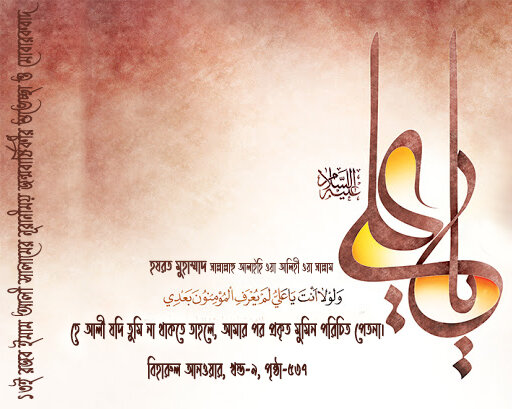 ১৩ই রজব ইমাম আলী আলাইহিস সালামের শুভ জন্মবার্ষিকীর শুভেচ্ছা ও মোবারকবাদ
يا علي
عليه السلام
হযরত মুহাম্মাদ সাল্লাল্লাহু আলাইহি ওয়া আলিহী ওয়া সাল্লাম
وَلَوْلَا أَنْتَ يَا عَلِيُّ لَمْ يُعْرَفِ الْمُؤْمِنُونَ بَعْدِي
হে আলী যদি তুমি না থাকতে তাহলে, আমার পর প্রকৃত মুমিন পরিচিত পেতনা।
বিহারুল আনওয়ার, খন্ড-৯, পৃষ্ঠা-৫৩৭